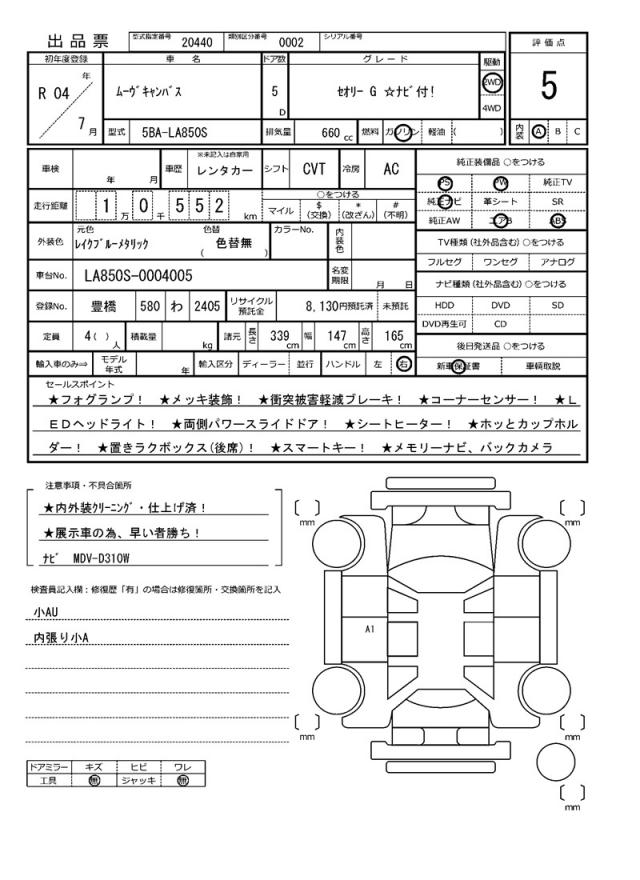 出品票 型式指定番号 20440 類別区分番号 0002 シリアル番号
評価点
5
初年度登録 車名 ドア数 グレード 駆動
R 04 年 7 月
ﾑｰｳﾞｷｬﾝﾊﾞｽ
5 D
ｾｵﾘｰ G ☆ﾅﾋﾞ付!
2WD
4WD
型式 5BA-LA850S 排気量 660 cc 燃料 ガソリン 軽油 ( )
内装 A B C
車検 年 月 車歴 ※未記入は自家用 レンタカー シフト CVT 冷房 AC
純正装備品 ○をつける
PS PW 純正TV
純正ナビ 革シート SR
純正AW エアB ABS
走行距離 1 万 0 千 5 5 2 km
○をつける
マイル $ (交換) * (改ざん) # (不明)
外装色 元色 ﾚｲｸﾌﾞﾙｰﾒﾀﾘｯｸ 色替 ( 色替無 ) カラーNo. 内装色
TV種類 (社外品含む) ○をつける
フルセグ ワンセグ アナログ
車台No. LA850S-0004005 名変期限 月 日
ナビ種類 (社外品含む) ○をつける
HDD DVD SD
DVD再生可 CD
登録No. 豊橋 580 わ 2405 リサイクル預託金 8,130円預託済 未預託
定員 4( ) 人 積載量 kg 諸元 長さ 339 cm 幅 147 cm 高さ 165 cm
後日発送品 ○をつける
新車保証書 車輌取説
輸入車のみ⇒ モデル年式 年 輸入区分 ディーラー 並行 ハンドル 左 右
セールスポイント
★フォグランプ! ★メッキ装飾! ★衝突被害軽減ブレーキ! ★コーナーセンサー! ★L
EDヘッドライト! ★両側パワースライドドア! ★シートヒーター! ★ホッとカップホル
ダー! ★置きラクボックス(後席)! ★スマートキー! ★メモリーナビ、バックカメラ
注意事項・不具合箇所
★内外装ｸﾘｰﾆﾝｸﾞ・仕上げ済!
★展示車の為、早い者勝ち!
ﾅﾋﾞ MDV-D310W
検査員記入欄：修復歴「有」の場合は修復箇所・交換箇所を記入
小AU
内張り小A
mm
mm
A1
mm
mm
mm
ドアミラー キズ ヒビ ワレ
工具 無 ジャッキ 無